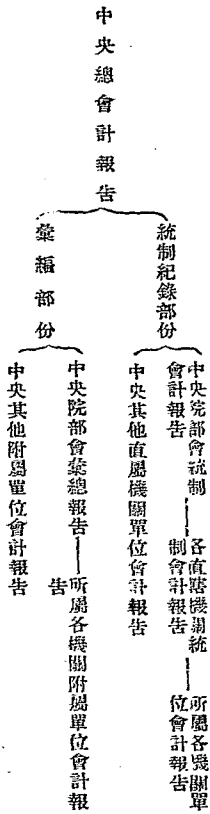 中央總會計報告
統制紀錄部份
中央院部會統制
會計報告
各直轄機關統
制會計報告
所屬各機關單
位會計報告
中央其他直屬機關單位會計報告
彙編部份
中央院部會彙總報告
所屬各機關附屬單位會計報
告
中央其他附屬單位會計報告